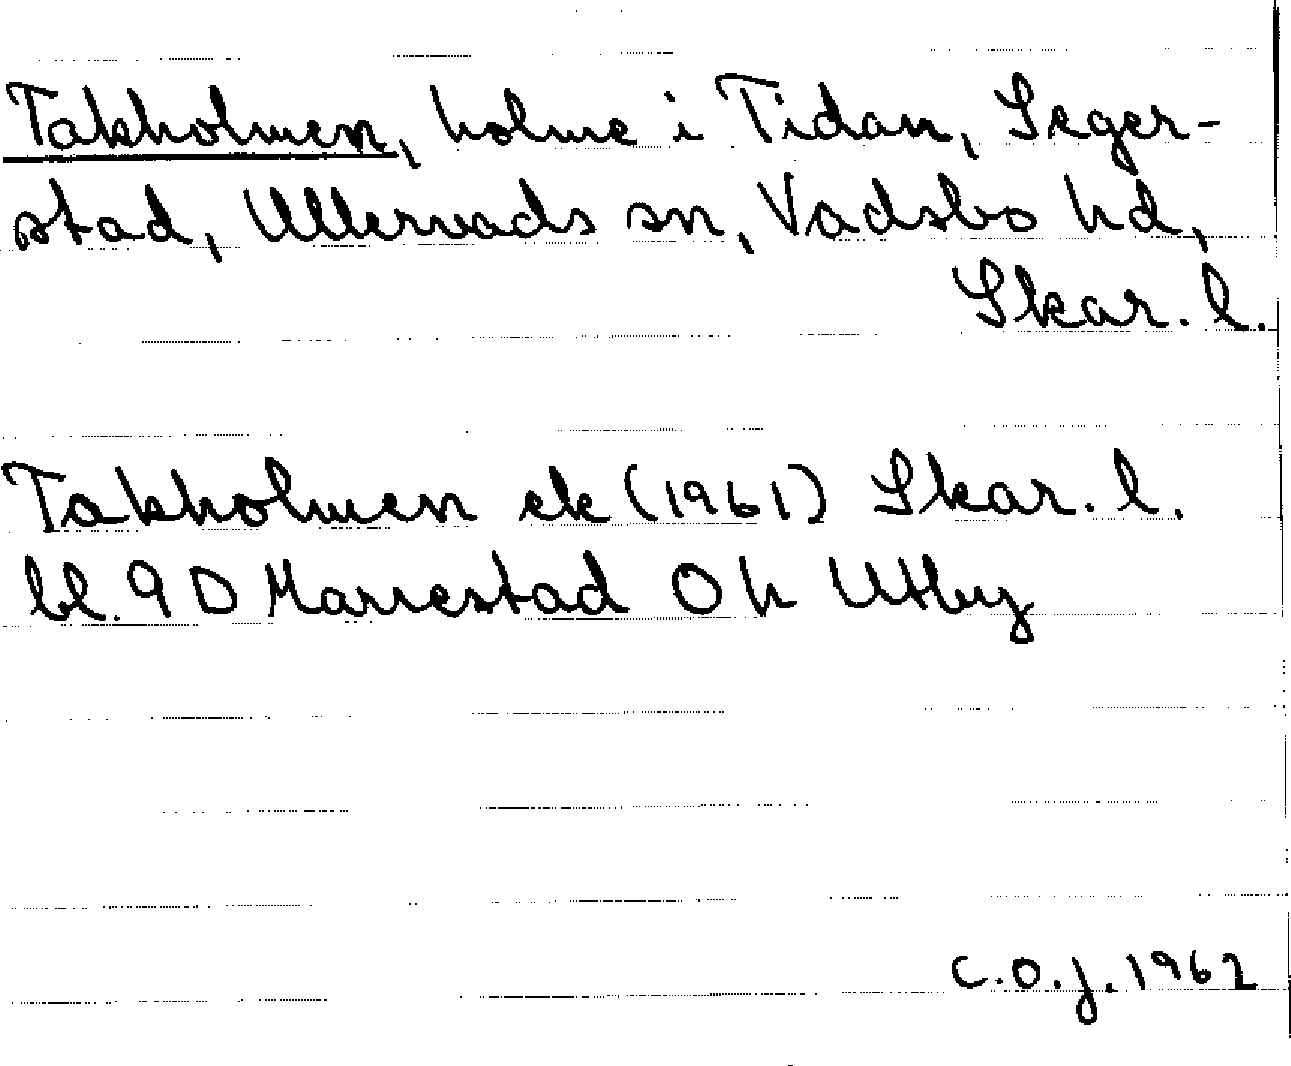 Takholmen, holme i Tidan, Seger-
stad, Ullervads sn, Vadsbo hd,
Skar. l.
Takholmen ek (1961) Skar. l.
bl. 9 D Mariestad Oh Utby
C.O.J. 1962